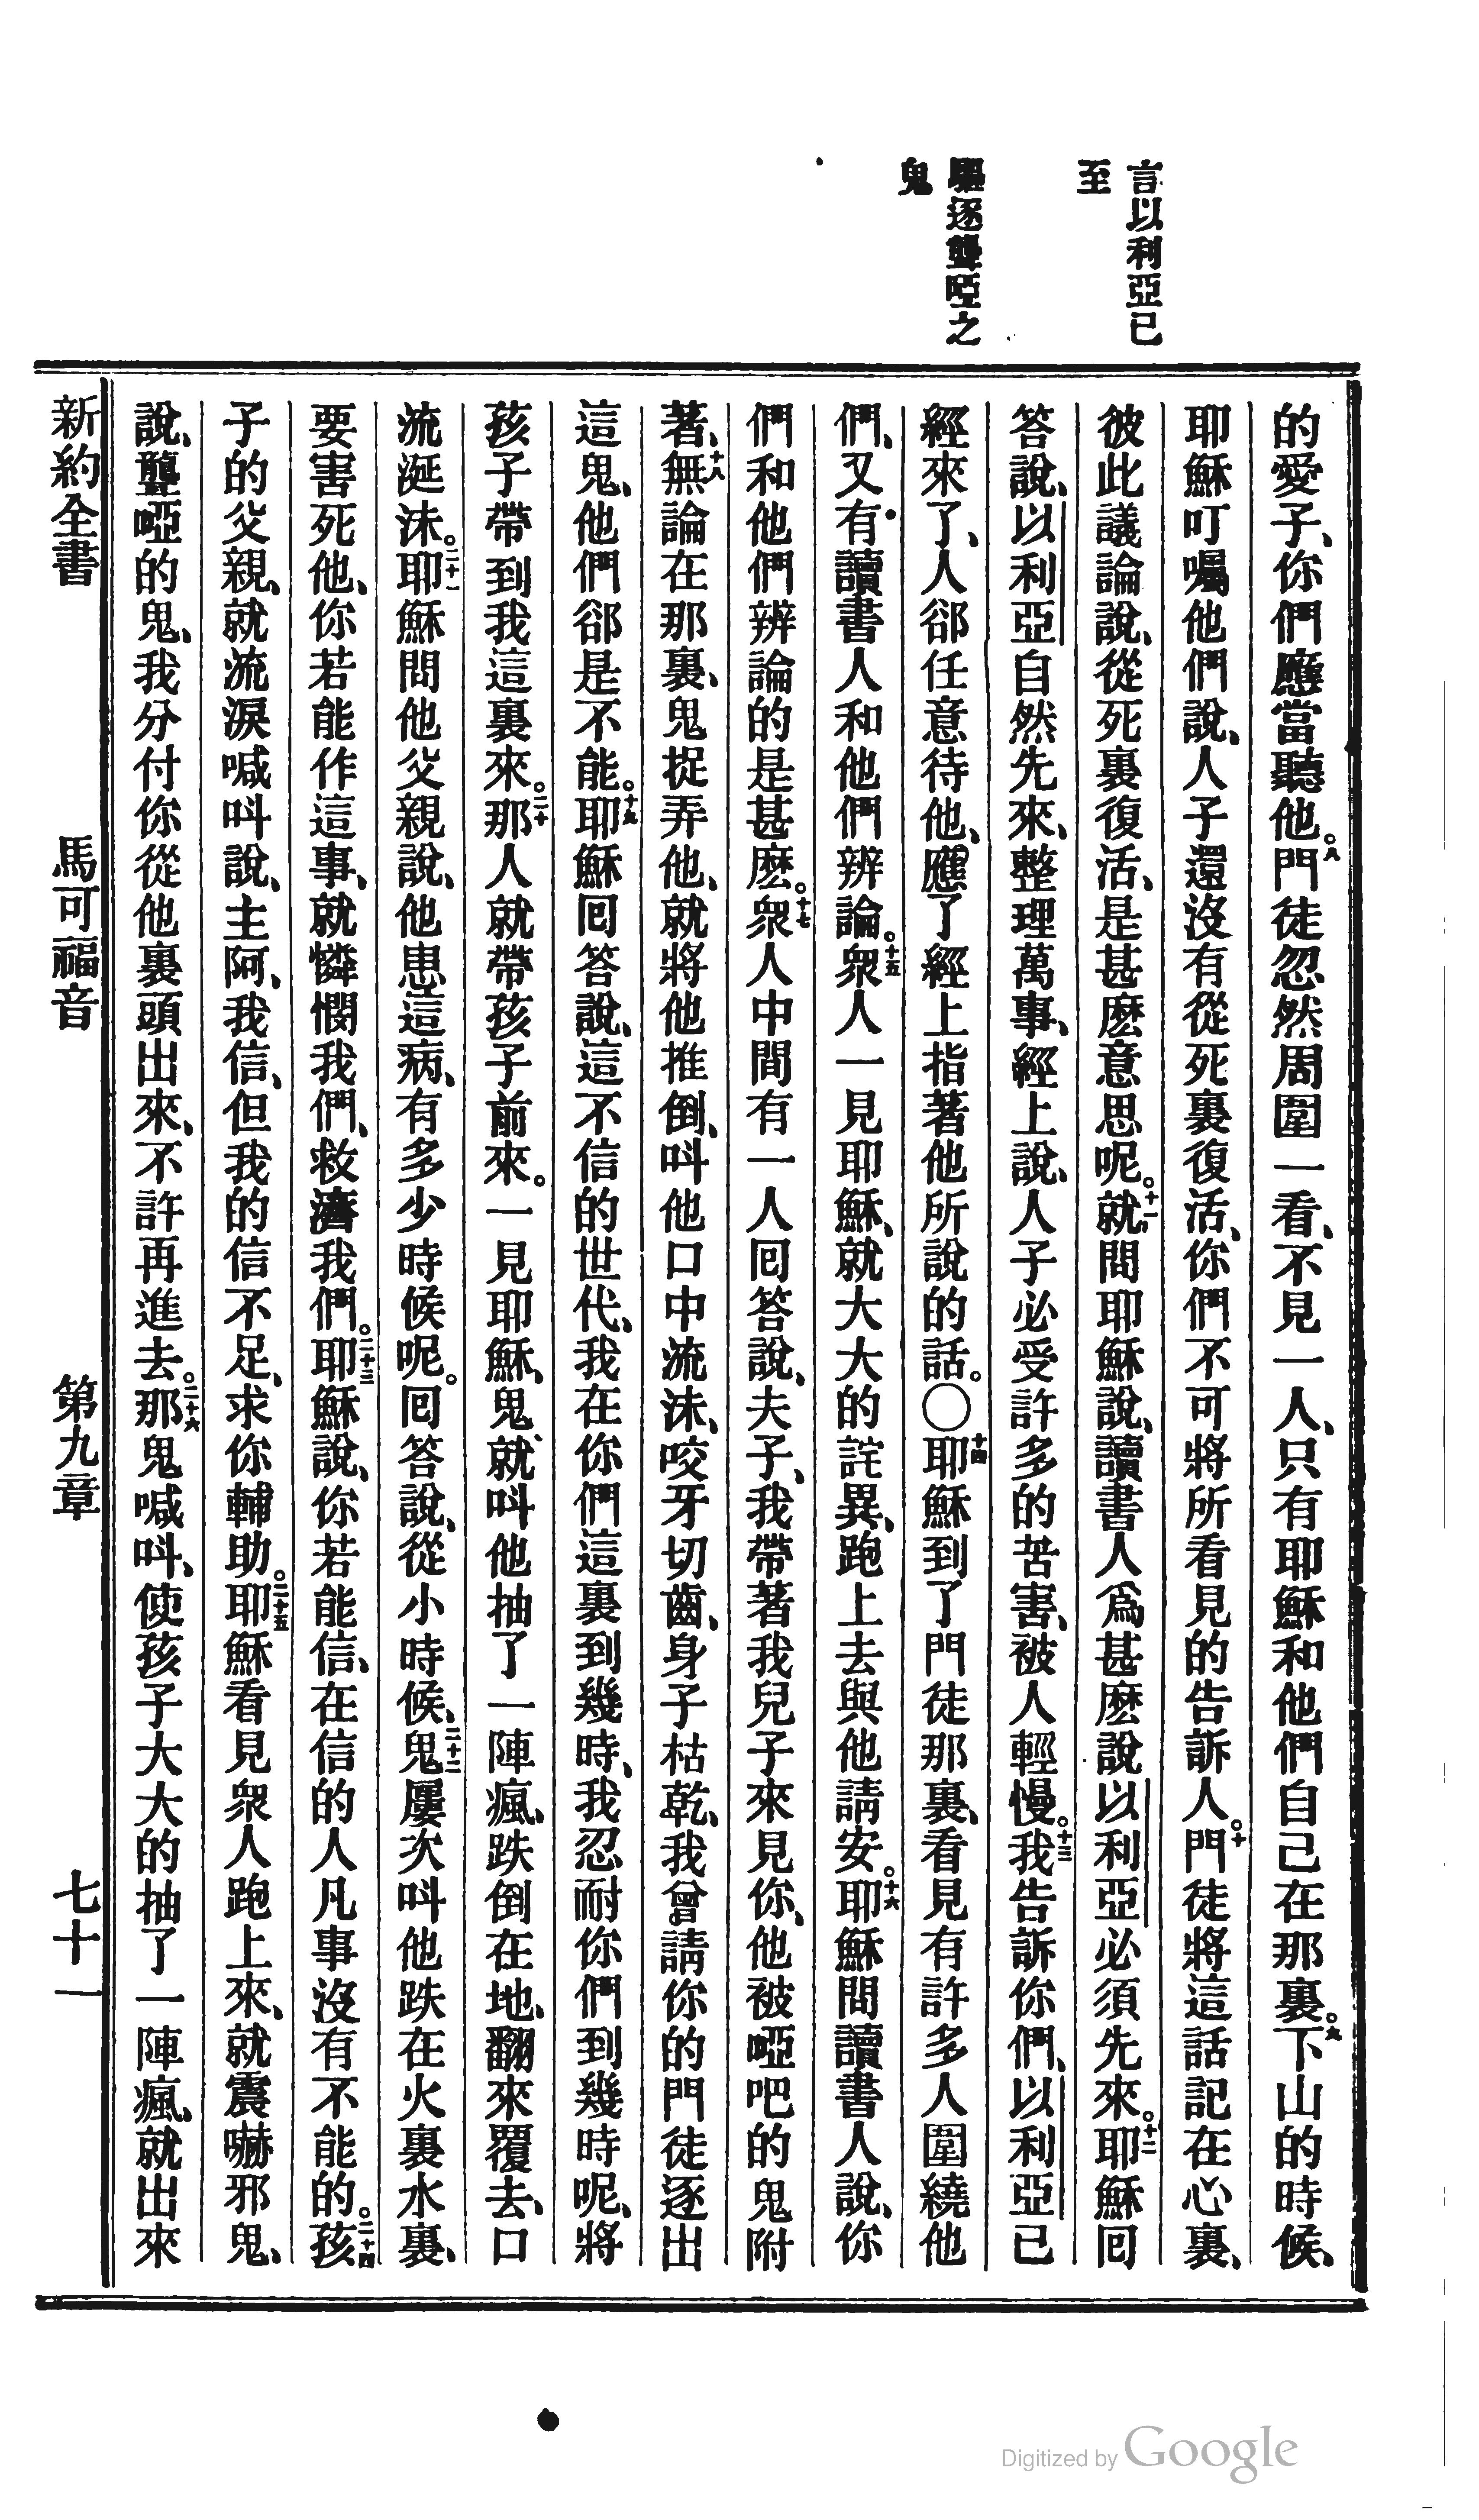 言以利亞已
至
驅逐聾啞之
鬼
的愛子、你們應當聽他。八門徒忽然周圍一看、不見一人、只有耶穌和他們自己在那裏。九下山的時候、
耶穌叮囑他們說、人子還沒有從死裏復活、你們不可將所看見的告訴人。十門徒將這話記在心裏、
彼此議論說、從死裏復活、是甚麽意思呢。十一就問耶穌說、讀書人爲甚麽說以利亞必須先來。十二耶穌回
答說、以利亞自然先來、整理萬事、經上說、人子必受許多的苦害、被人輕慢。十三我告訴你們、以利亞已
經來了、人郤任意待他、應了經上指著他所說的話。〇十四耶穌到了門徒那裏、看見有許多人圍繞他
們、又有讀書人和他們辨論。十五衆人一見耶穌、就大大的詫異、跑上去與他請安。十六耶穌問讀書人說、你
們和他們辨論的是甚麽。十七衆人中間有一人回答說、夫子、我帶著我兒子來見你、他被啞吧的鬼附
著、十八無論在那裏、鬼捉弄他、就將他推倒、叫他口中流沫、咬牙切齒、身子枯乾、我曾請你的門徒逐出
這鬼、他們郤是不能。十九耶穌回答說、這不信的世代、我在你們這裏到幾時、我忍耐你們到幾時呢、將
孩子帶到我這裏來。二十那人就帶孩子前來。一見耶穌、鬼就叫他抽了一陣瘋、跌倒在地、翻來覆去、口
流涎沫。二十一耶穌問他父親說、他患這病、有多少時候呢。回答說、從小時候、二十二鬼屢次叫他跌在火裏水裏、
要害死他、你若能作這事、就憐憫我們、救濟我們。二十三耶穌說、你若能信、在信的人凡事沒有不能的。二十四孩
子的父親、就流淚喊叫說、主阿、我信、但我的信不足、求你輔助。二十五耶穌看見衆人跑上來、就震嚇邪鬼、
說、聾啞的鬼、我分付你從他裏頭出來、不許再進去。二十六那鬼喊叫、使孩子大大的抽了一陣瘋、就出來
新約全書 馬可福音 第九章 七十一
Digitized by Google